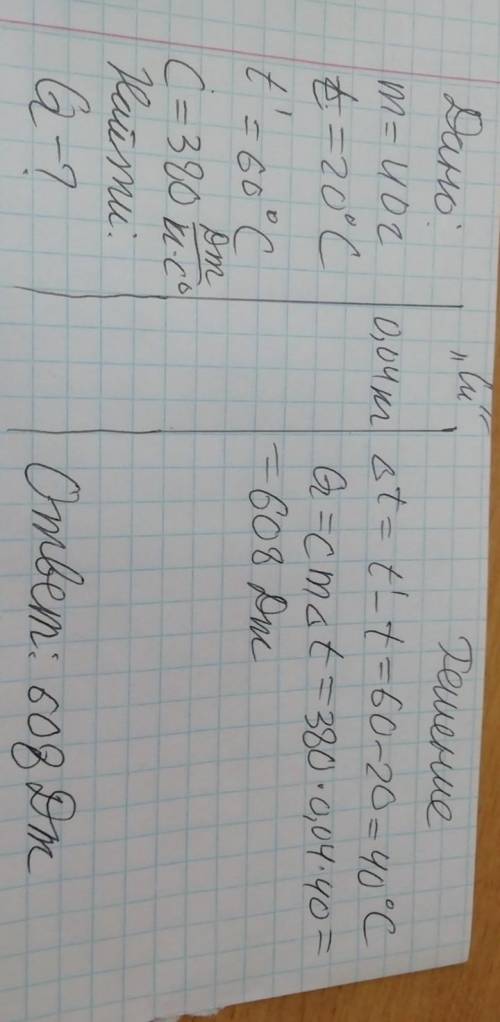 Дано:
m = 40г
t = 20°C
t' = 60°C
C = 380 Дж/кг·C°
Найти:
Q - ?
„Си“
0,04кг
Решение
Δt = t' - t = 60 - 20 = 40°C
Q = cmΔt = 380 · 0,04 · 40 =
= 608 Дж
Ответ: 608 Дж